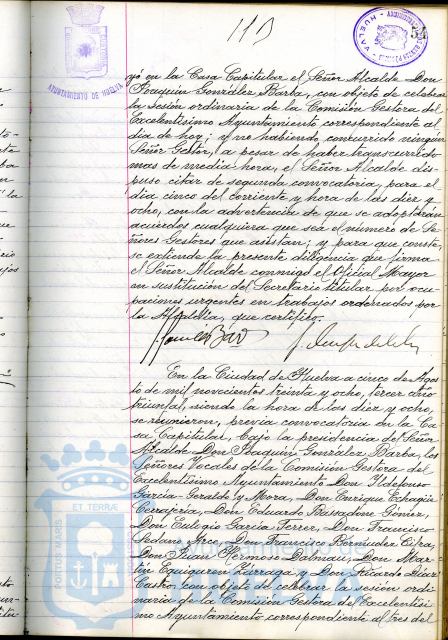 119
54
AYUNTAMIENTO DE HUELVA
HUELVA
yó en la Casa Capitular el Señor Alcalde Don
Joaquín González Barba, con objeto de celebrar
la sesión ordinaria de la Comisión Gestora del
Excelentísimo Ayuntamiento correspondiente al
día de hoy; y no habiendo concurrido ningún
Señor Gestor, a pesar de haber transcurrido
mas de media hora, el Señor Alcalde dis-
puso citar de segunda convocatoria, para el
día cinco del corriente y hora de las diez y
ocho, con la advertencia de que se adoptarán
acuerdos cualquiera que sea el número de Se-
ñores Gestores que asistan; y para que conste,
se extiende la presente diligencia que firma
el Señor Alcalde conmigo el Oficial Mayor
en sustitución del Secretario titular por ocu-
paciones urgentes en trabajos ordenados por
la Alcaldía, que certifico.
En la Ciudad de Huelva a cinco de Agos-
to de mil novecientos treinta y ocho, tercer año
triunfal, siendo la hora de las diez y ocho,
se reunieron, previa convocatoria en la Ca-
sa Capitular, bajo la presidencia del Señor
Alcalde Don Joaquín González Barba, los
Señores Vocales de la Comisión Gestora del
Excelentísimo Ayuntamiento Don Ildefonso
García-Geraldo y Mora, Don Enrique Echagüe
Cerrajería, Don Eduardo Gómez,
Don Eulogio García Ferrer, Don Francisco
Seduno Arce, Don Francisco Bermúdez Cifra,
Don Juan Jimena Delmau, Don Mar-
tín Equiguren Zárraga y Don Ricardo Díaz
Castro, con objeto de celebrar la sesión ordi-
naria de la Comisión Gestora del Excelentísi-
mo Ayuntamiento correspondiente al tres del
PORTUS MARIS ET TERRAE